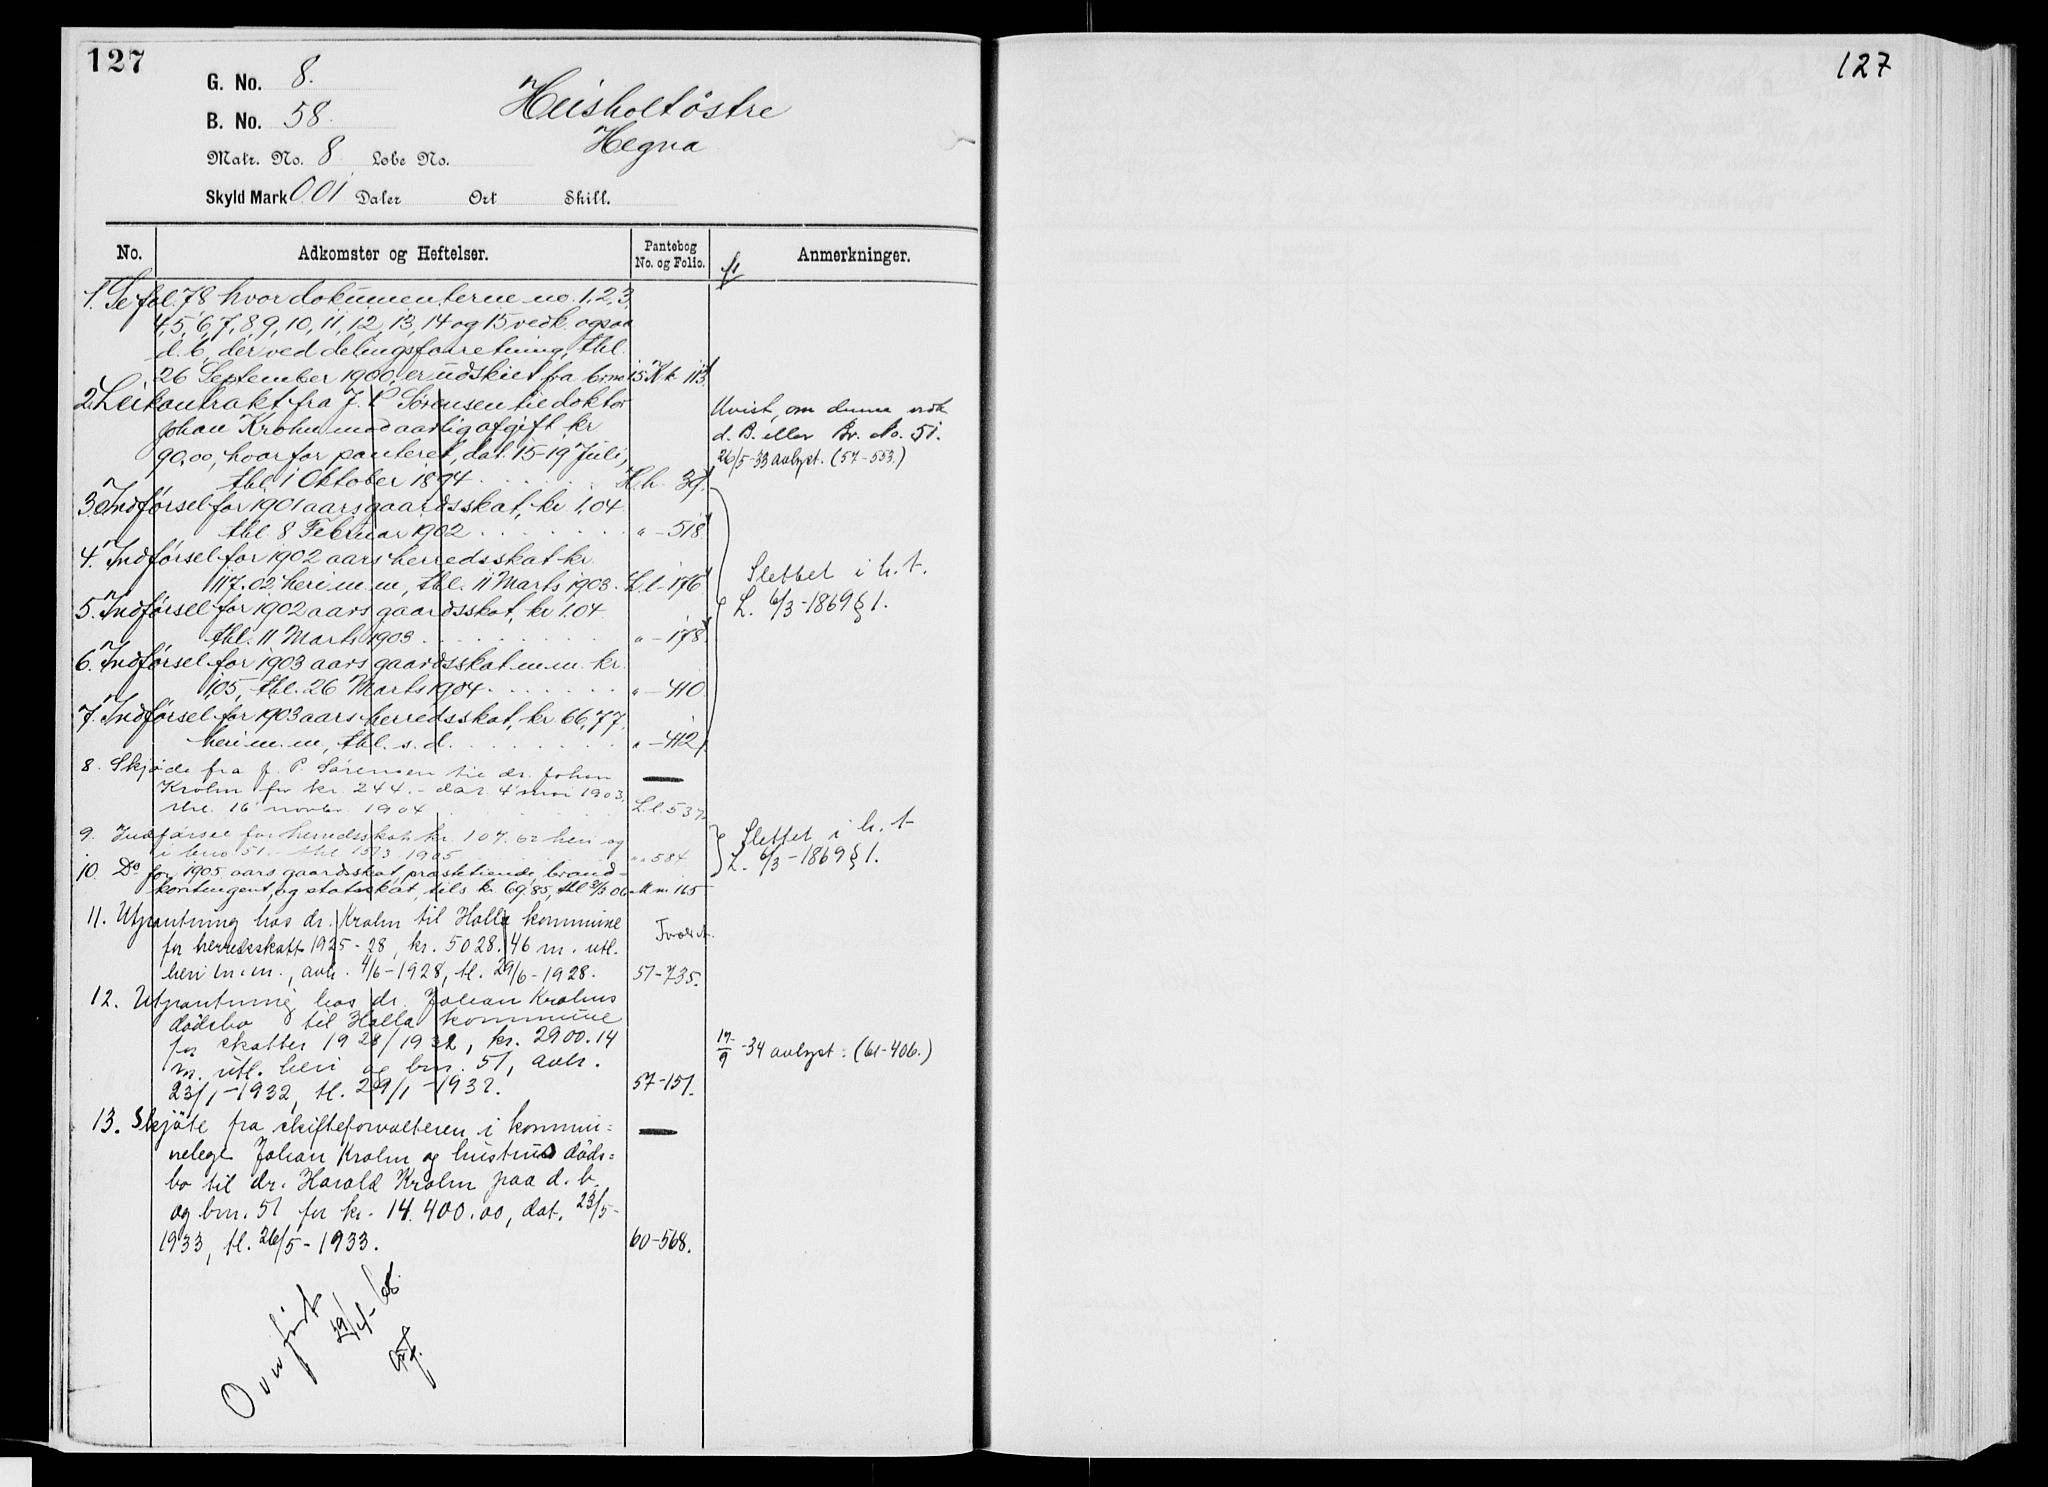 127
G. No. 8.
B. No. 58.
Matr. No. 8. Løbe No.
Skyld Mark 0.01 Daler Ort Skill.
Heisholt östre
Hegna
No. Adkomster og Heftelser. Pantebog No. og Folio. Anmerkninger.
1. Se fol. 78 hvor dokumenterne no. 1, 2, 3,
4, 5, 6, 7, 8, 9, 10, 11, 12, 13, 14 og 15 vedk. ogsaa
d. b., der ved delingsforretning, tbl.
26 September 1900, er udskilt fra br. no 15 K k 113.
2. Leikontrakt fra J. P. Sørensen til doktor
Johan Krohn mod aarlig afgift kr
90,00, hvorfor panteret, dat. 15-19 Juli,
tbl 1 Oktober 1894 . . . . . . H. h. 39.
Uvist, om denne vedk
d. B. eller Br. No. 51.
26/5-33 avlyst. (57-553.)
3. Indførsel for 1901 aars gaardsskat, kr 1,04
tbl. 8 Februar 1902 . . . . . . . " - 518.
4. Indførsel for 1902 aars herredsskat kr.
117.02 heri m. m, tbl. 11 Marts 1903. L l - 176
5. Indførsel for 1902 aars gaardsskat, kr 1.04
tbl. 11 Marts 1903 . . . . . . . . " - 178
6. Indførsel for 1903 aars gaardsskat m. m. kr.
1,05, tbl. 26 Marts 1904 . . . . . . . " - 410.
7. Indførsel for 1903 aars herredsskat, kr 66,77.
heri m. m, tbl. s. d. . . . . . . . . " - 412.
Slettet i h. t.
L. 6/3-1869 § 1.
8. Skjøde fra J. P. Sørensen til dr. Johan
Krohn for kr. 244.- dat. 4 mai 1903,
tbl. 16 novbr. 1904 L. l. 537
9. Indførsel for herredsskat kr. 107.62 heri og
i bno 51. tbl 15/3 1905 " " 584
10. Do for 1905 aars gaardsskat, præstetiende, brand-
kontingent, og statsskat, tils kr 69,85, tbl 3/3 06 M m 165
Slettet i h. t
L. 6/3-1869 § 1.
11. Utpantning hos dr. Krohn til Holla kommune
for herredsskatt 1925-28, kr. 5028.46 m. utl.
heri m. m., avh. 4/6-1928, tl. 29/6-1928. 51-735.
12. Utpantning hos dr. Johan Krohns
dødsbo til Holla kommune
for skatter 1928/1932, kr. 2900.14
m. utl. heri og bnr. 51, avh.
23/1-1932, tl. 29/1-1932. 57-151.
17/9-34 avlyst: (61-406.)
13. Skjöte fra skifteforvalteren i kommu=
nelege Johan Krohn og hustrus döds=
bo til dr. Harald Krohn paa d. b.
og bnr. 51 for kr. 14.400.00, dat. 23/5-
1933, tl. 26/5-1933. 60-568.
Overført
29/4-68.
127